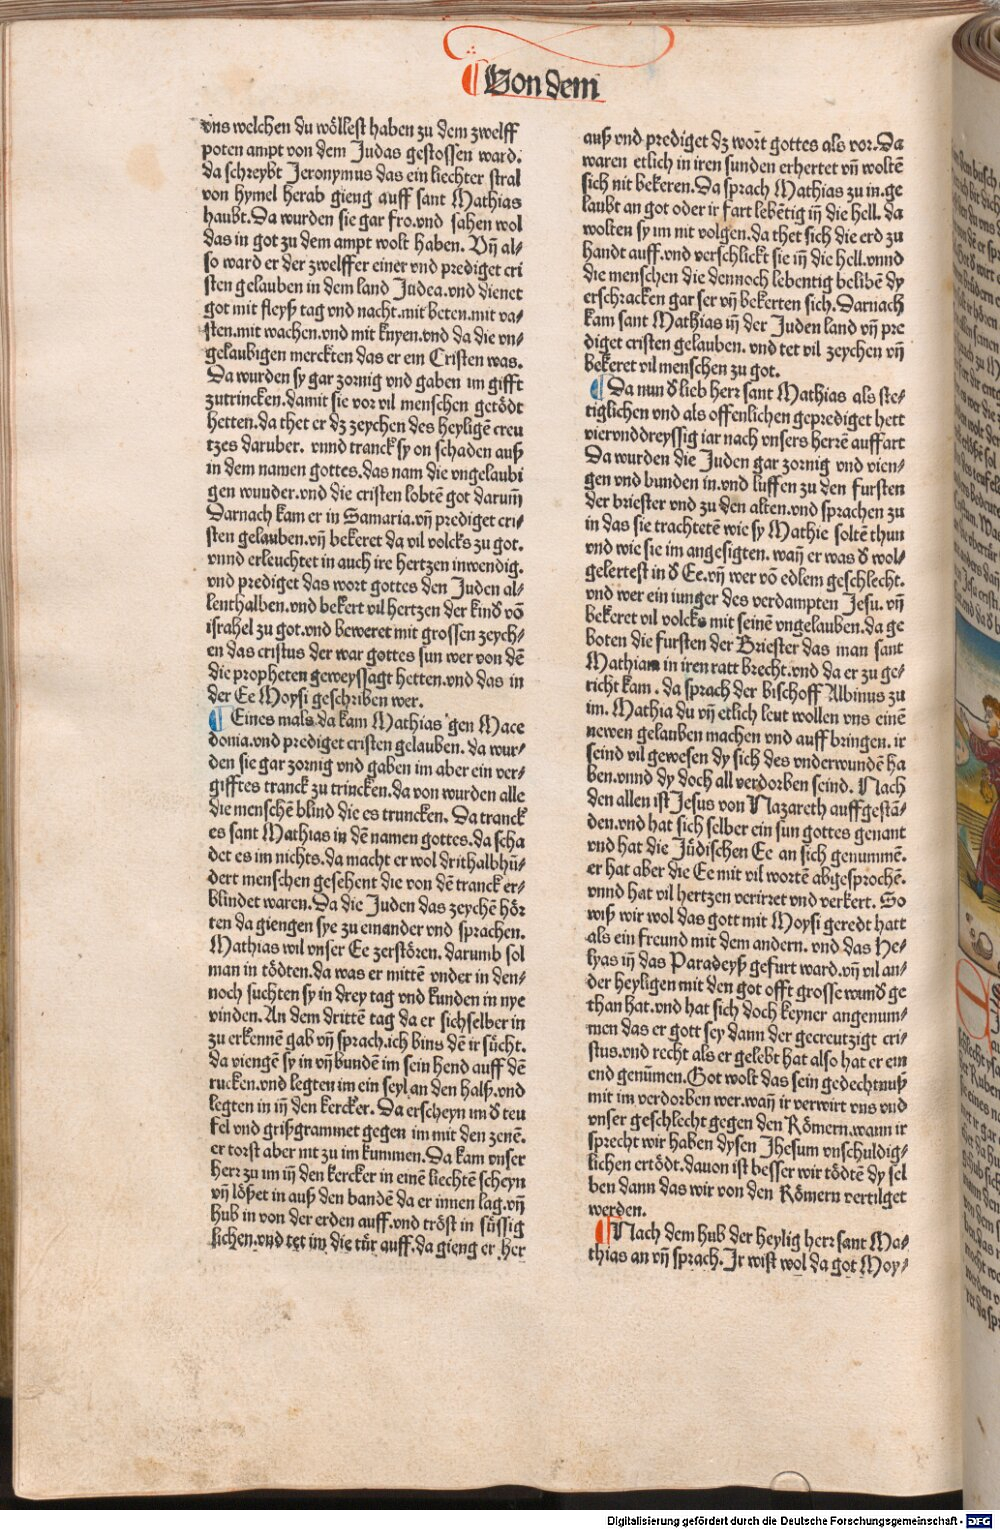 Von dem
vns welchen du wöllest haben zu dem zwelff
poten ampt von dem Judas gestossen ward.
da schreybt Jeronymus das ein liechter stral
von hymel herab gieng auff sant Mathias
haubt. Da wurden sie gar fro. vnd sahen wol
das in got zu dem ampt wolt haben. Vn̄ al⸗
so ward er der zwelffer einer vnd prediget cri
sten gelauben in dem land Judea. vnd dienet
got mit fleyß tag vnd nacht. mit beten. mit va⸗
sten. mit wachen. vnd mit knyen. vnd da die vn⸗
gelaubigen merckten das er ein Cristen was.
Da wurden sy gar zornig vnd gaben im gifft
zutrincken. damit sie vor vil menschen getödt
hetten. da thet er dz zeychen des heyligē creu
tzes daruber. vnnd tranck sy on schaden auß
in dem namen gottes. das nam die vngelaubi
gen wunder. vnd die cristen lobtē got darum̄
Darnach kam er in Samaria. vn̄ prediget cri⸗
sten gelauben. vn̄ bekeret da vil volcks zu got.
vnnd erleuchtet in auch ire hertzen inwendig.
vnd prediget das wort gottes den Juden al⸗
lenthalben. vnd bekert vil hertzen der kind vō
israhel zu got. vnd beweret mit grossen zeych⸗
en das cristus der war gottes sun wer von dē
die propheten geweyssagt hetten. vnd das in
der Ee Moysi geschriben wer.
Eines mals da kam Mathias gen Mace
donia. vnd prediget cristen gelauben. da wur⸗
den sie gar zornig vnd gaben im aber ein ver⸗
gifftes tranck zu trincken. da von wurden alle
die menschē blind die es truncken. Da tranck
es sant Mathias in dē namen gottes. da scha
det es im nichts. da macht er wol drithalbhū⸗
dert menschen gesehent die von dē tranck er⸗
blindet waren. Da die Juden das zeychē hör
ten da giengen sye zu einander vnd sprachen.
Mathias wil vnser Ee zerstören. darumb sol
man in tödten. da was er mittē vnder in den⸗
noch suchten sy in drey tag vnd kunden in nye
vinden. An dem drittē tag da er sich selber in
zu erkennē gab vn̄ sprach. ich bins dē ir sücht.
da viengē sy in vn̄ bundē im sein hend auff dē
rucken. vnd legten im ein seyl an den halß. vnd
legten in in̄ den kercker. Da erscheyn im d̕ teu
fel vnd grißgrammet gegen im mit den zenē.
er torst aber nit zu im kummen. Da kam vnser
herr zu im in̄ den kercker in einē liechtē scheyn
vn̄ lößet in auß den bandē da er innen lag. vn̄
hub in von der erden auff. vnd tröst in süssig
lichen. vnd tet im die tür auff. da gieng er her
auß vnd prediget dz wort gottes als vor. Da
waren etlich in iren sunden erhertet vn̄ woltē
sich nit bekeren. Da sprach Mathias zu in. ge
laubt an got oder ir fart lebētig in̄ die hell. da
wolten sy im nit volgen. da thet sich die erd zu
handt auff. vnd verschlickt sie in̄ die hell. vnnd
die menschen die dennoch lebentig belibē dy
erschracken gar ser vn̄ bekerten sich. Darnach
kam sant Mathias in̄ der Juden land vn̄ pre
diget cristen gelauben. vnd tet vil zeychen vn̄
bekeret vil menschen zu got.
Da nun d̕ lieb herr sant Mathias als ste⸗
tiglichen vnd als offenlichen geprediget hett
viervnddreyssig iar nach vnsers herrē auffart
Da wurden die Juden gar zornig vnd vien⸗
gen vnd bunden in. vnd luffen zu den fursten
der briester vnd zu den alten. vnd sprachen zu
in das sie trachtetē wie sy Mathie soltē thun
vnd wie sie im angesigten. wan̄ er was d̕ wol⸗
gelertest in d̕ Ee. vn̄ wer vō edlem geschlecht.
vnd wer ein iunger des verdampten Jesu. vn̄
bekeret vil volcks mit seinē vngelauben. da ge
boten die fursten der Briester das man sant
Mathiam in iren ratt brecht. vnd da er zu ge⸗
richt kam. da sprach der bischoff Albinus zu
im. Mathia du vn̄ etlich leut wollen vns einē
newen gelauben machen vnd auff bringen. ir
seind vil gewesen dy sich des vnderwundē ha
ben. vnnd dy doch all verdorben seind. Nach
den allen ist Jesus von Nazareth auffgestā⸗
den. vnd hat sich selber ein sun gottes genant
vnd hat die Jüdischen Ee an sich genummē.
er hat aber die Ee mit vil wortē abgesprochē.
vnnd hat vil hertzen verirret vnd verkert. So
wiß wir wol das gott mit Moysi geredt hatt
als ein freund mit dem andern. vnd das He⸗
lyas in̄ das Paradeyß gefurt ward. vn̄ vil an⸗
der heyligen mit den got offt grosse wund̕ ge
than hat. vnd hat sich doch keyner angenum⸗
men das er gott sey dann der gecreutzigt cri⸗
stus. vnd recht als er gelebt hat also hat er ein
end genūmen. Got wolt das sein gedechtnuß
mit im verdorben wer. wan̄ ir verwirt vns vnd
vnser geschlecht gegen den Römern. wann ir
sprecht wir haben dysen Jhesum vnschuldig⸗
lichen ertödt. dauon ist besser wir tödtē dy sel
ben dann das wir von den Römern vertilget
werden.
Nach dem hub der heylig herr sant Ma⸗
thias an vn̄ sprach. Ir wist wol da got Moy⸗
Digitalisierung gefördert durch die Deutsche Forschungsgemeinschaft - DFG